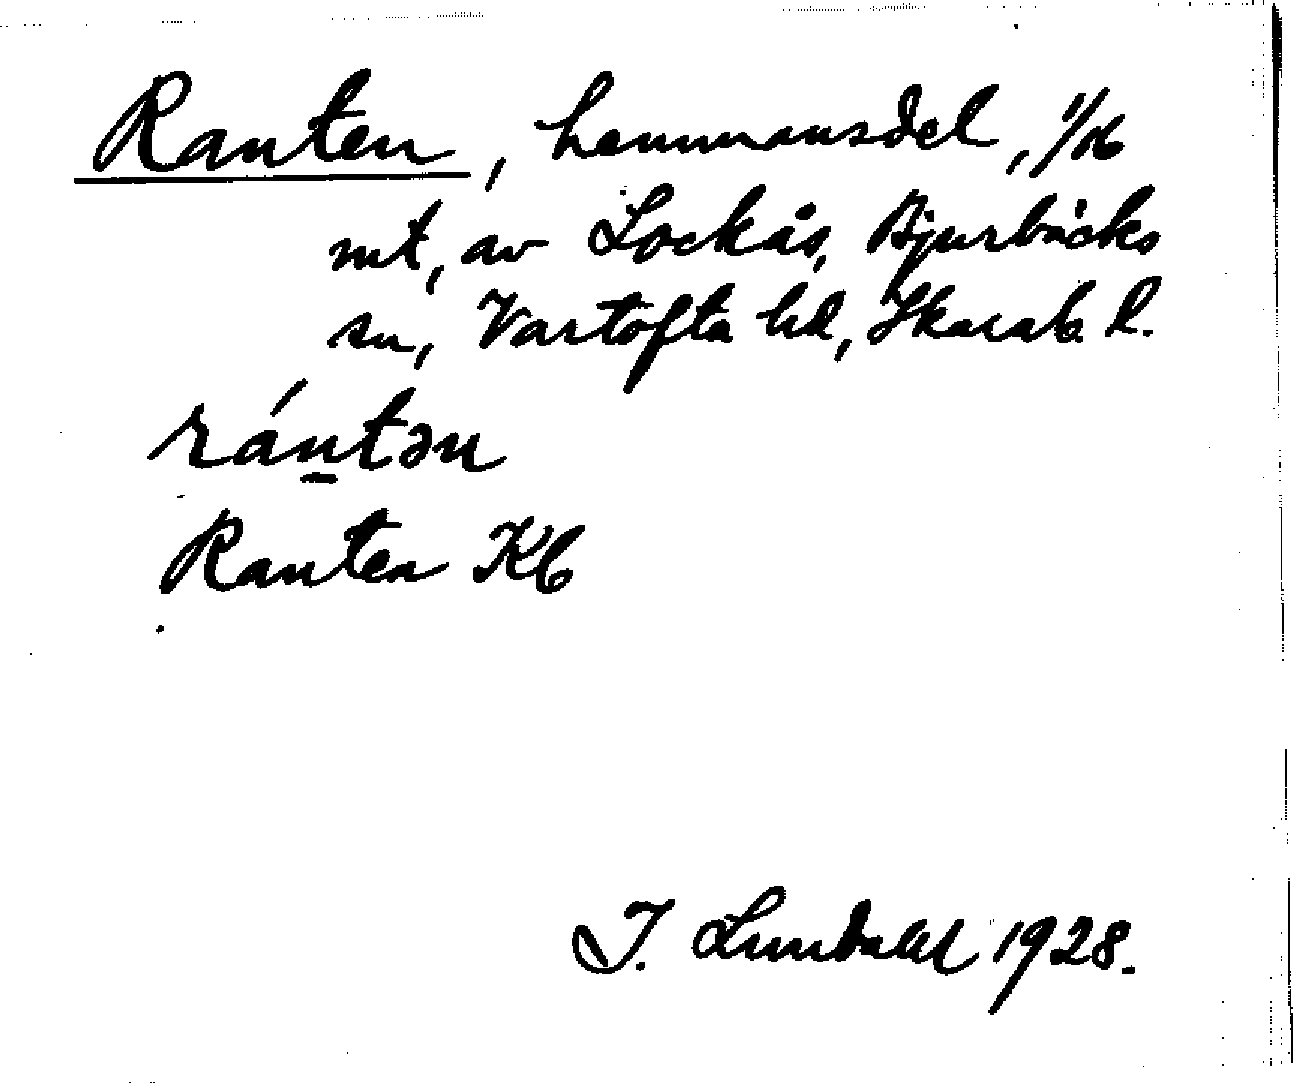 Ranten, hemmansdel, 1/16
mt, av Lockås, Bjurbäcks
sn, Vartofta hd, Skarab. l.
rán̠tən
Ranten Kb
I. Lundahl 1928.